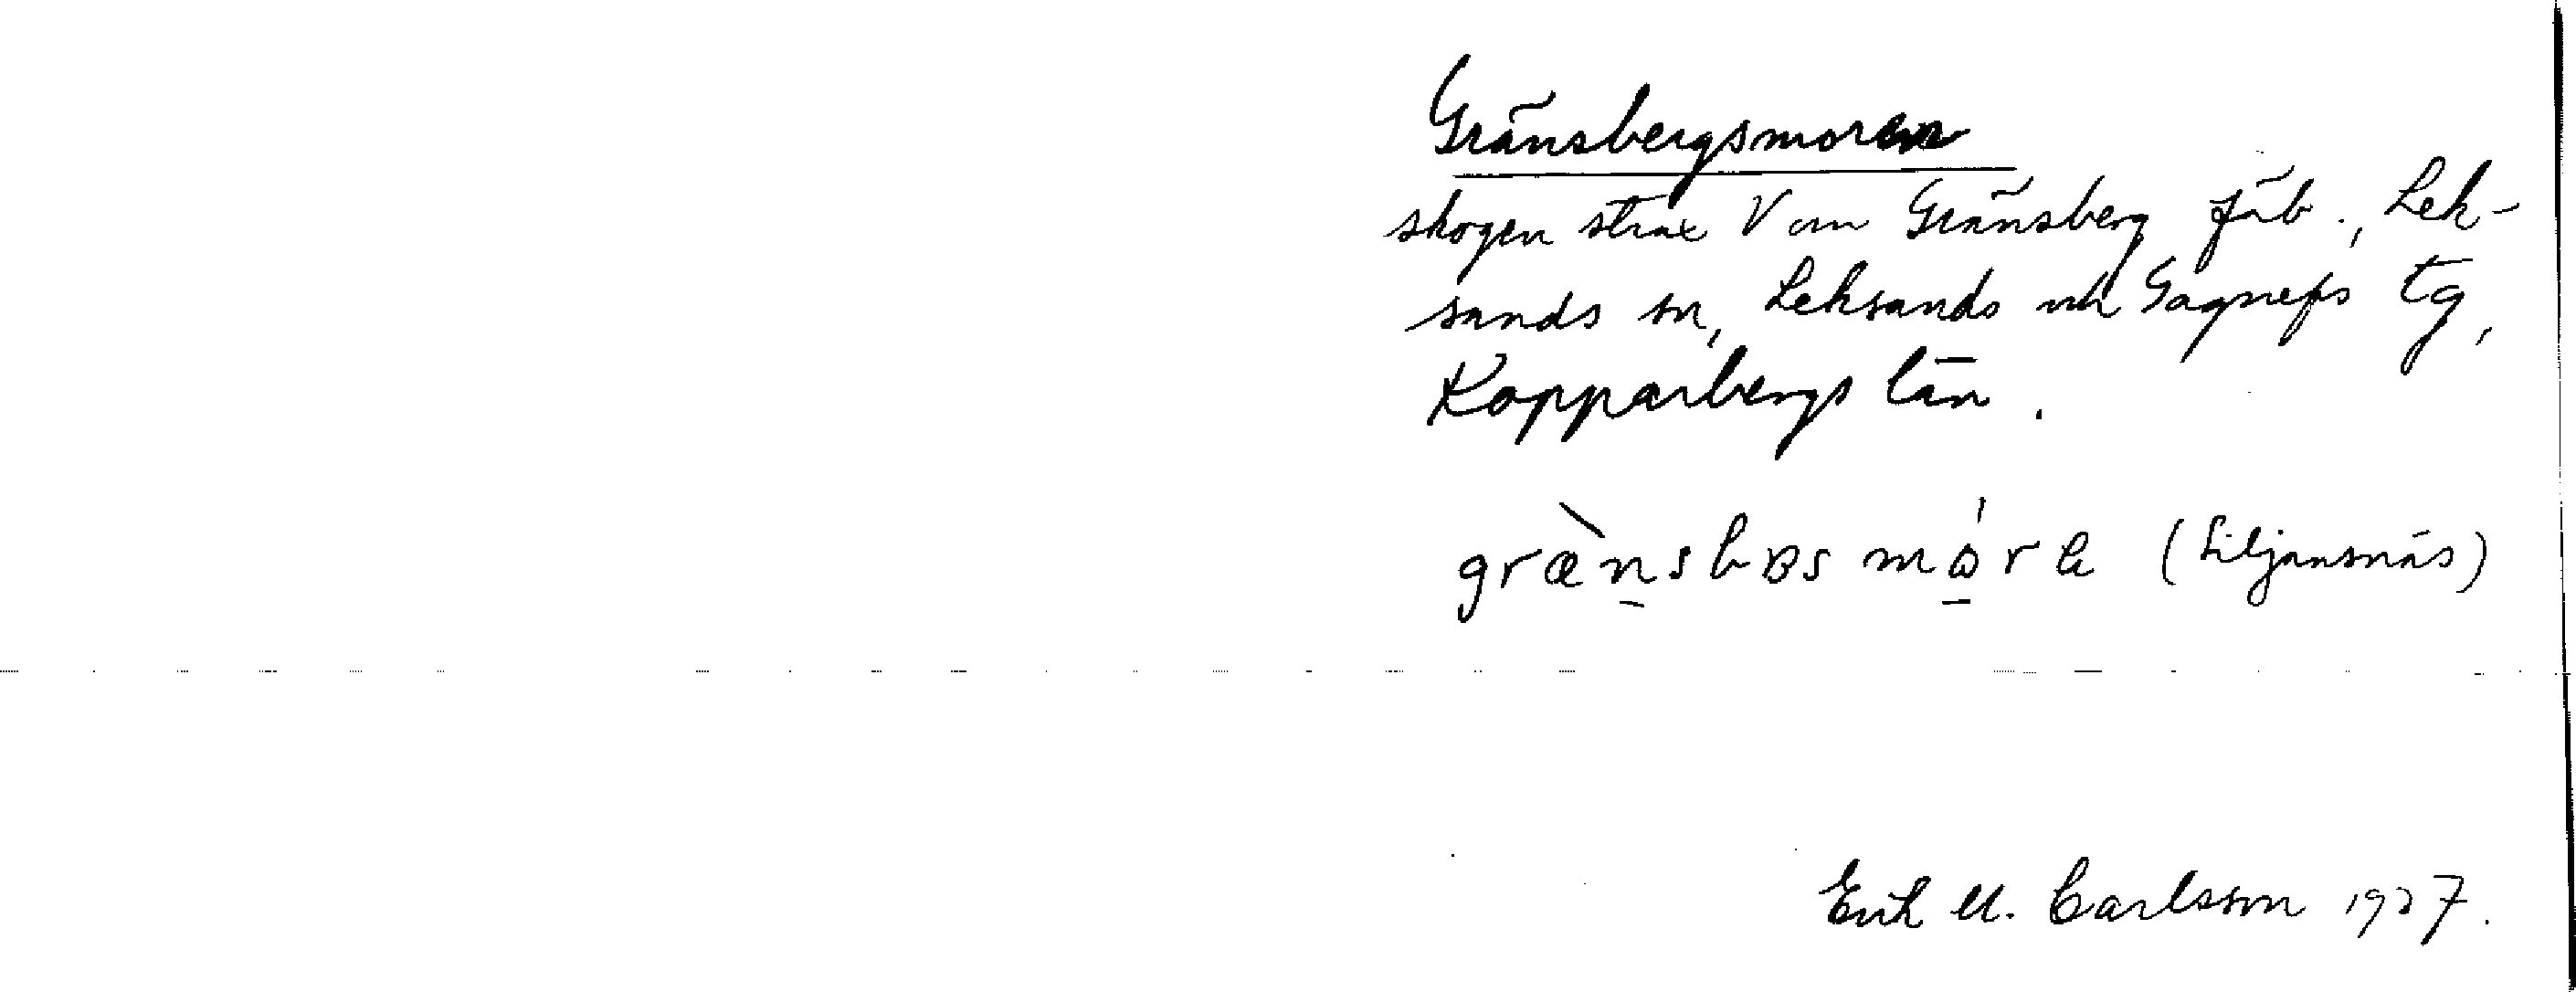 Gränsbergsmoren
skogen strax V om Gränsberg fäb., Lek-
sands sn, Leksands och Gagnefs tg,
Kopparbergs län.
græ̀nsbɷsmɷ̍ra (Siljansnäs)
Erik M. Carlsson 1927.